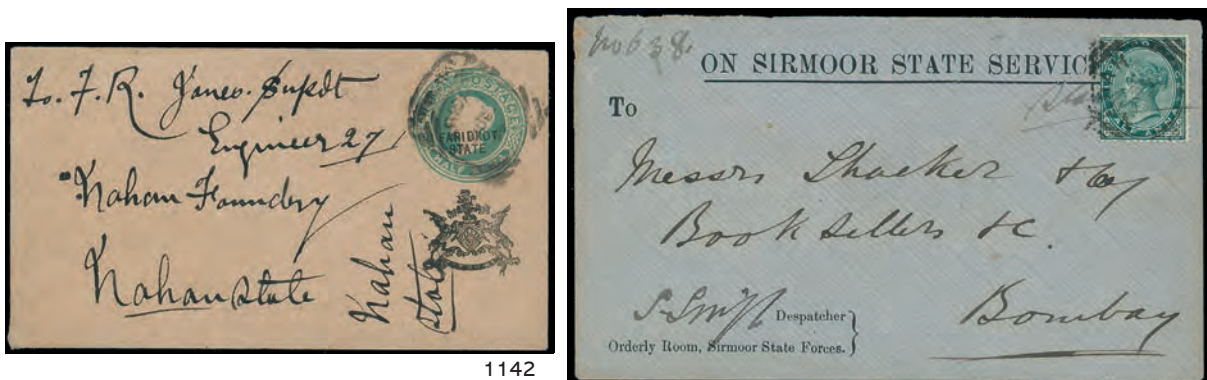 To. F. R. Jones. Supdt
Engineer 27
Nahan Foundry
Nahan State
Nahan
State
POSTAGE
FARIDKOT
STATE
HALF
1142
No 638.
ON SIRMOOR STATE SERVIC
To
Messrs Thacker & Coy
Book Sellers &c.
Bombay
Despatcher
Orderly Room, Sirmoor State Forces.